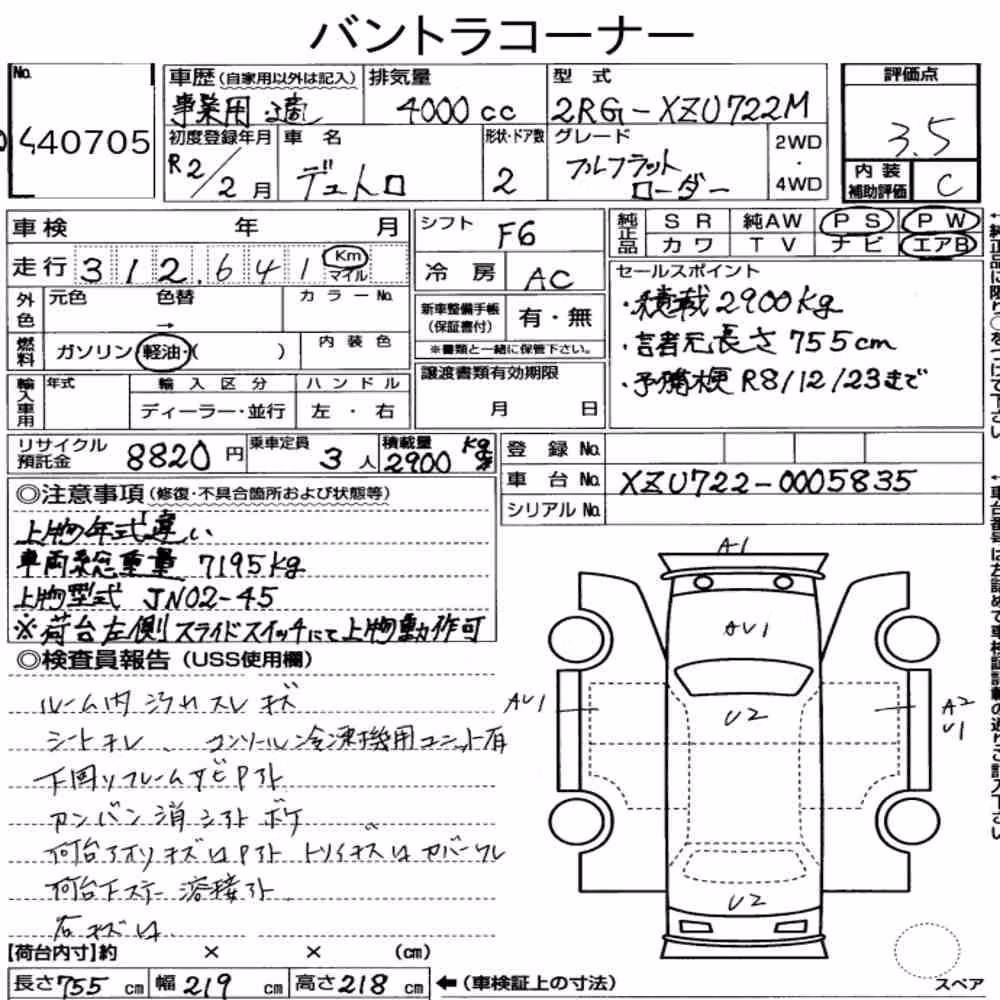 バントラコーナー
No.
440705
車歴(自家用以外は記入)
事業用
排気量
4000cc
型式
2RG-XZU722M
評価点
3.5
初度登録年月
R2/2月
車名
デュトロ
形状・ドア数
2
グレード
フルフラット
ローダー
2WD
・
4WD
内装
補助評価
C
車検 年 月
走行 312,641 Km
マイル
シフト
F6
冷房
AC
純正品
SR 純AW PS PW
カワ TV ナビ エアB
外色
元色 色替 カラーNo.
→
燃料
ガソリン・軽油・( )
内装色
新車整備手帳
(保証書付)
有・無
※書類と一緒に保管下さい。
セールスポイント
・積載2900kg
長さ755cm
・予備検R8/12/23まで
輸入車用
年式
輸入区分
ディーラー・並行
ハンドル
左・右
譲渡書類有効期限
月 日
リサイクル
預託金
8820円
乗車定員
3人
積載量
2900 kg
登録No.
車台No. XZU722-0005835
シリアルNo.
◎注意事項(修復・不具合箇所および状態等)
上物年式違い
車両総重量 7195kg
上物型式 JN02-45
※荷台左側スライドスイッチにて上物動作可
◎検査員報告(USS使用欄)
ルーム内汚れスレキズ
シートキレ、コンソール冷凍機用ユニット有
下回りフレームサビPタト
カンバン消シタトボケ
荷台下ステー溶接タト
【荷台内寸】約 × × (cm)
長さ755cm 幅219cm 高さ218cm
←(車検証上の寸法)
A1
AU1
U2
AU1
A2
U1
U2
スペア